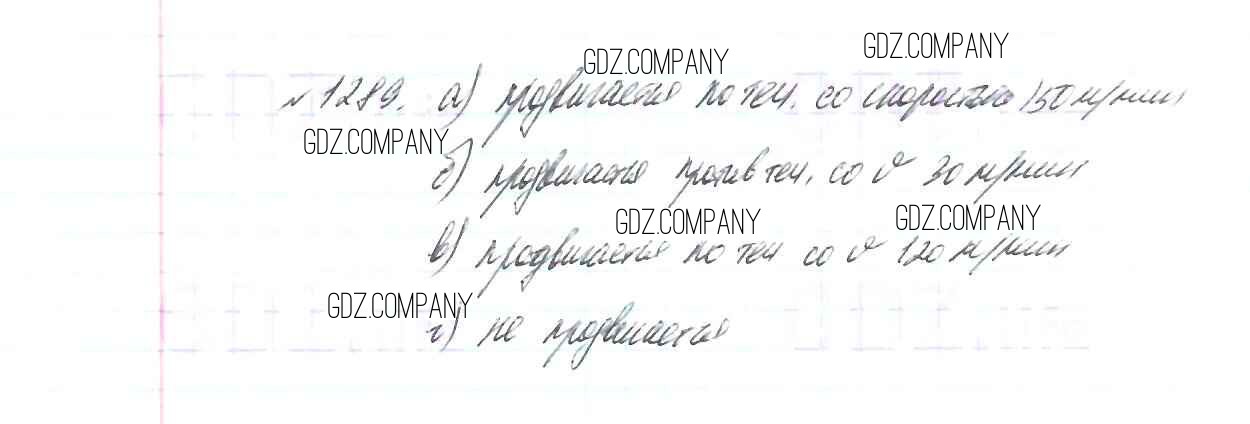 GDZ.COMPANY
GDZ.COMPANY
№ 1289. а) продвигается по теч. со скоростью 150 м/мин
GDZ.COMPANY
б) продвигается против теч. со υ 30 м/мин
GDZ.COMPANY
GDZ.COMPANY
в) продвигается по теч со υ 120 м/мин
GDZ.COMPANY
г) не продвигается